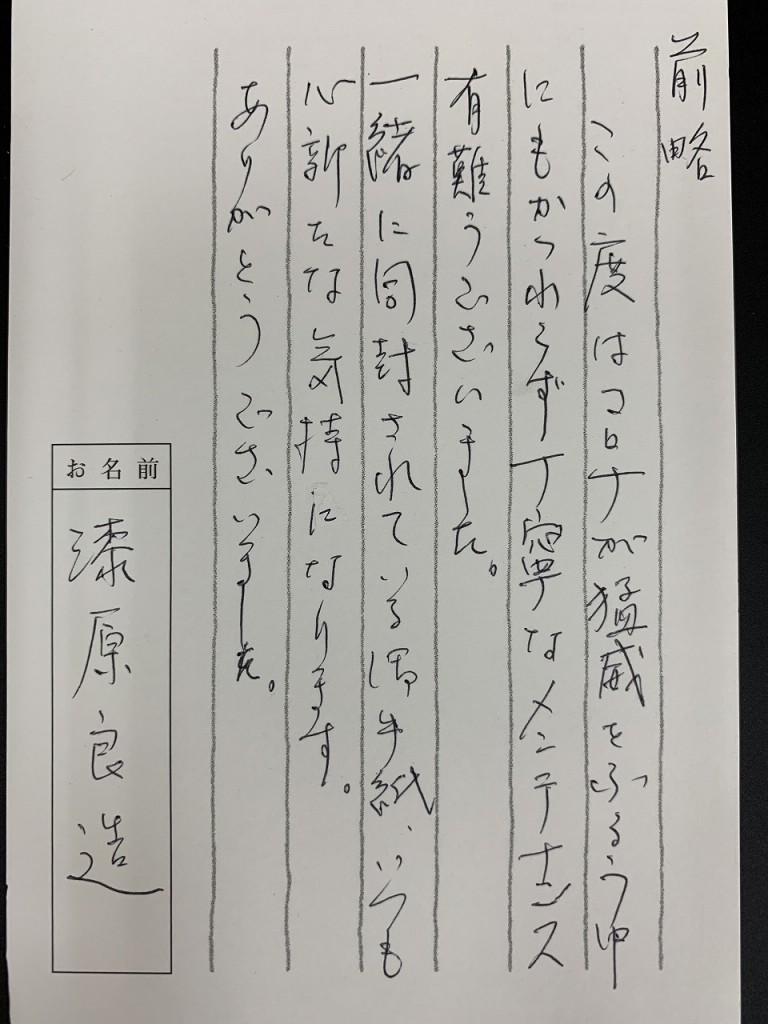 前略
この度はコロナが猛威をふるう中
にもかかわらず丁寧なメンテナンス
有難うございました。
一緒に同封されている御手紙、いつも
心新たな気持になります。
ありがとうございました。
お名前
漆原良造